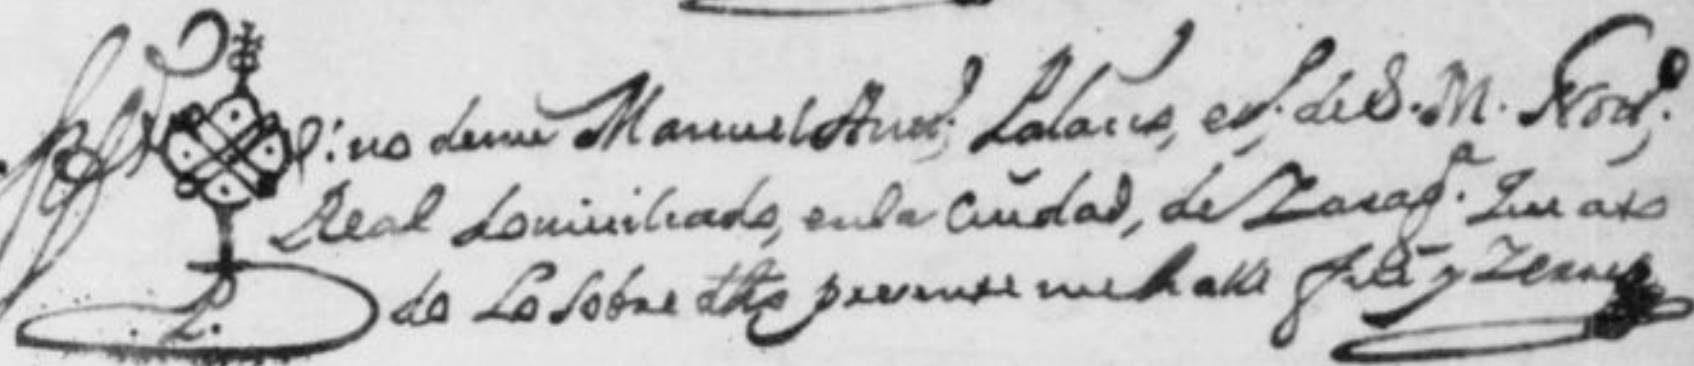 Sig no de mi Manuel Ant.º Lalana, es.no de S. M. Not.º
Real domiciliado, en la Ciudad, de Zarag.ª Que a to
do lo sobre dho presente me halle fuí y zerre
L.